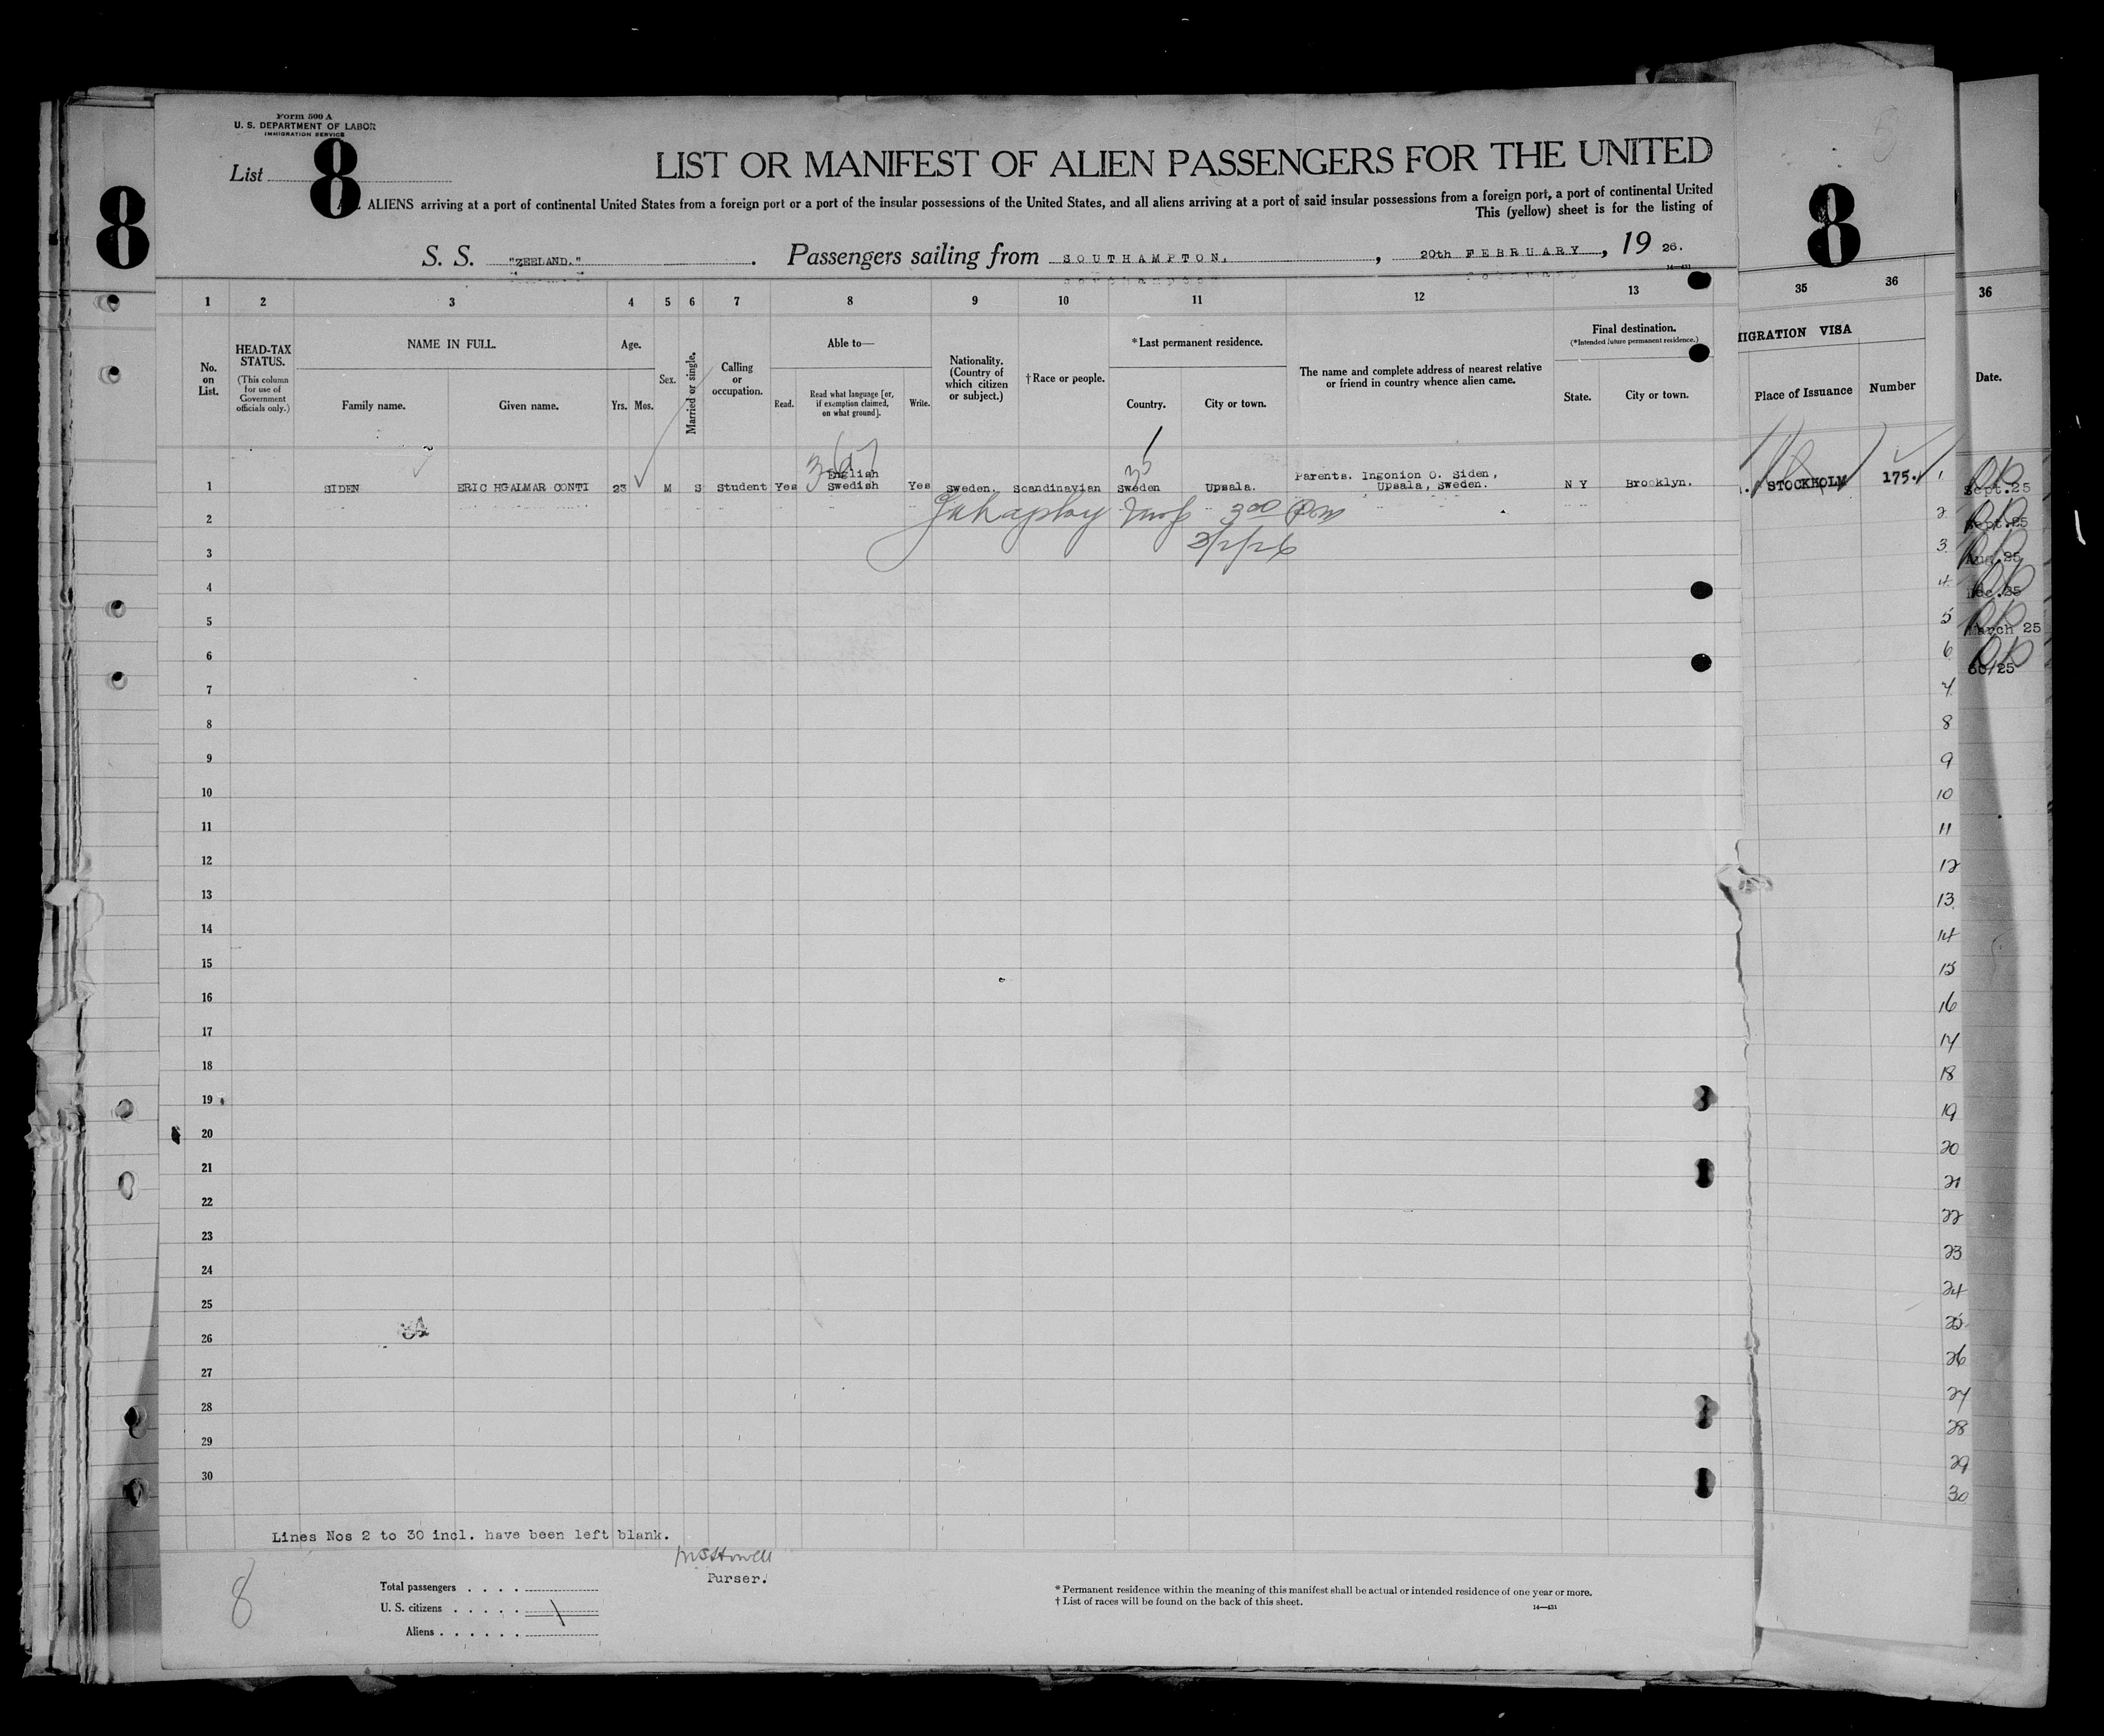 Form 500 A
U. S. DEPARTMENT OF LABOR
IMMIGRATION SERVICE
List 8
8
8
LIST OR MANIFEST OF ALIEN PASSENGERS FOR THE UNITED
ALIENS arriving at a port of continental United States from a foreign port or a port of the insular possessions of the United States, and all aliens arriving at a port of said insular possessions from a foreign port, a port of continental United
This (yellow) sheet is for the listing of
S. S. "ZEELAND." Passengers sailing from SOUTHAMPTON, 20th FEBRUARY, 19 26.
14—431
1 2 3 4 5 6 7 8 9 10 11 12 13 35 36 36
No. on List.
HEAD-TAX STATUS.
(This column for use of Government officials only.)
NAME IN FULL.
Family name. Given name.
Age.
Yrs. Mos.
Sex.
Married or single.
Calling or occupation.
Able to—
Read. Read what language [or, if exemption claimed, on what ground]. Write.
Nationality. (Country of which citizen or subject.)
†Race or people.
*Last permanent residence.
Country. City or town.
The name and complete address of nearest relative or friend in country whence alien came.
Final destination.
(*Intended future permanent residence.)
State. City or town.
MIGRATION VISA
Place of Issuance Number
Date.
1 SIDEN ERIC HGALMAR CONTI 23 M S Student Yes English Swedish Yes Sweden. Scandinavian Sweden Upsala. Parents. Ingonion O. Siden, Upsala, Sweden. N Y Brooklyn. STOCKHOLM 175. 1 Sept.25
3 00 Pm
3/2/26
2 2 Sept.25
3 3 Aug.25
4 4 Dec.25
5 5 March 25
6 6
7 7
8 8
9 9
10 10
11 11
12 12
13 13
14 14
15 15
16 16
17 17
18 18
19 19
20 20
21 21
22 22
23 23
24 24
25 25
26 26
27 27
28 28
29 29
30 30
Lines Nos 2 to 30 incl. have been left blank.
Purser.
8
Total passengers
U. S. citizens
Aliens
* Permanent residence within the meaning of this manifest shall be actual or intended residence of one year or more.
† List of races will be found on the back of this sheet.
14—431